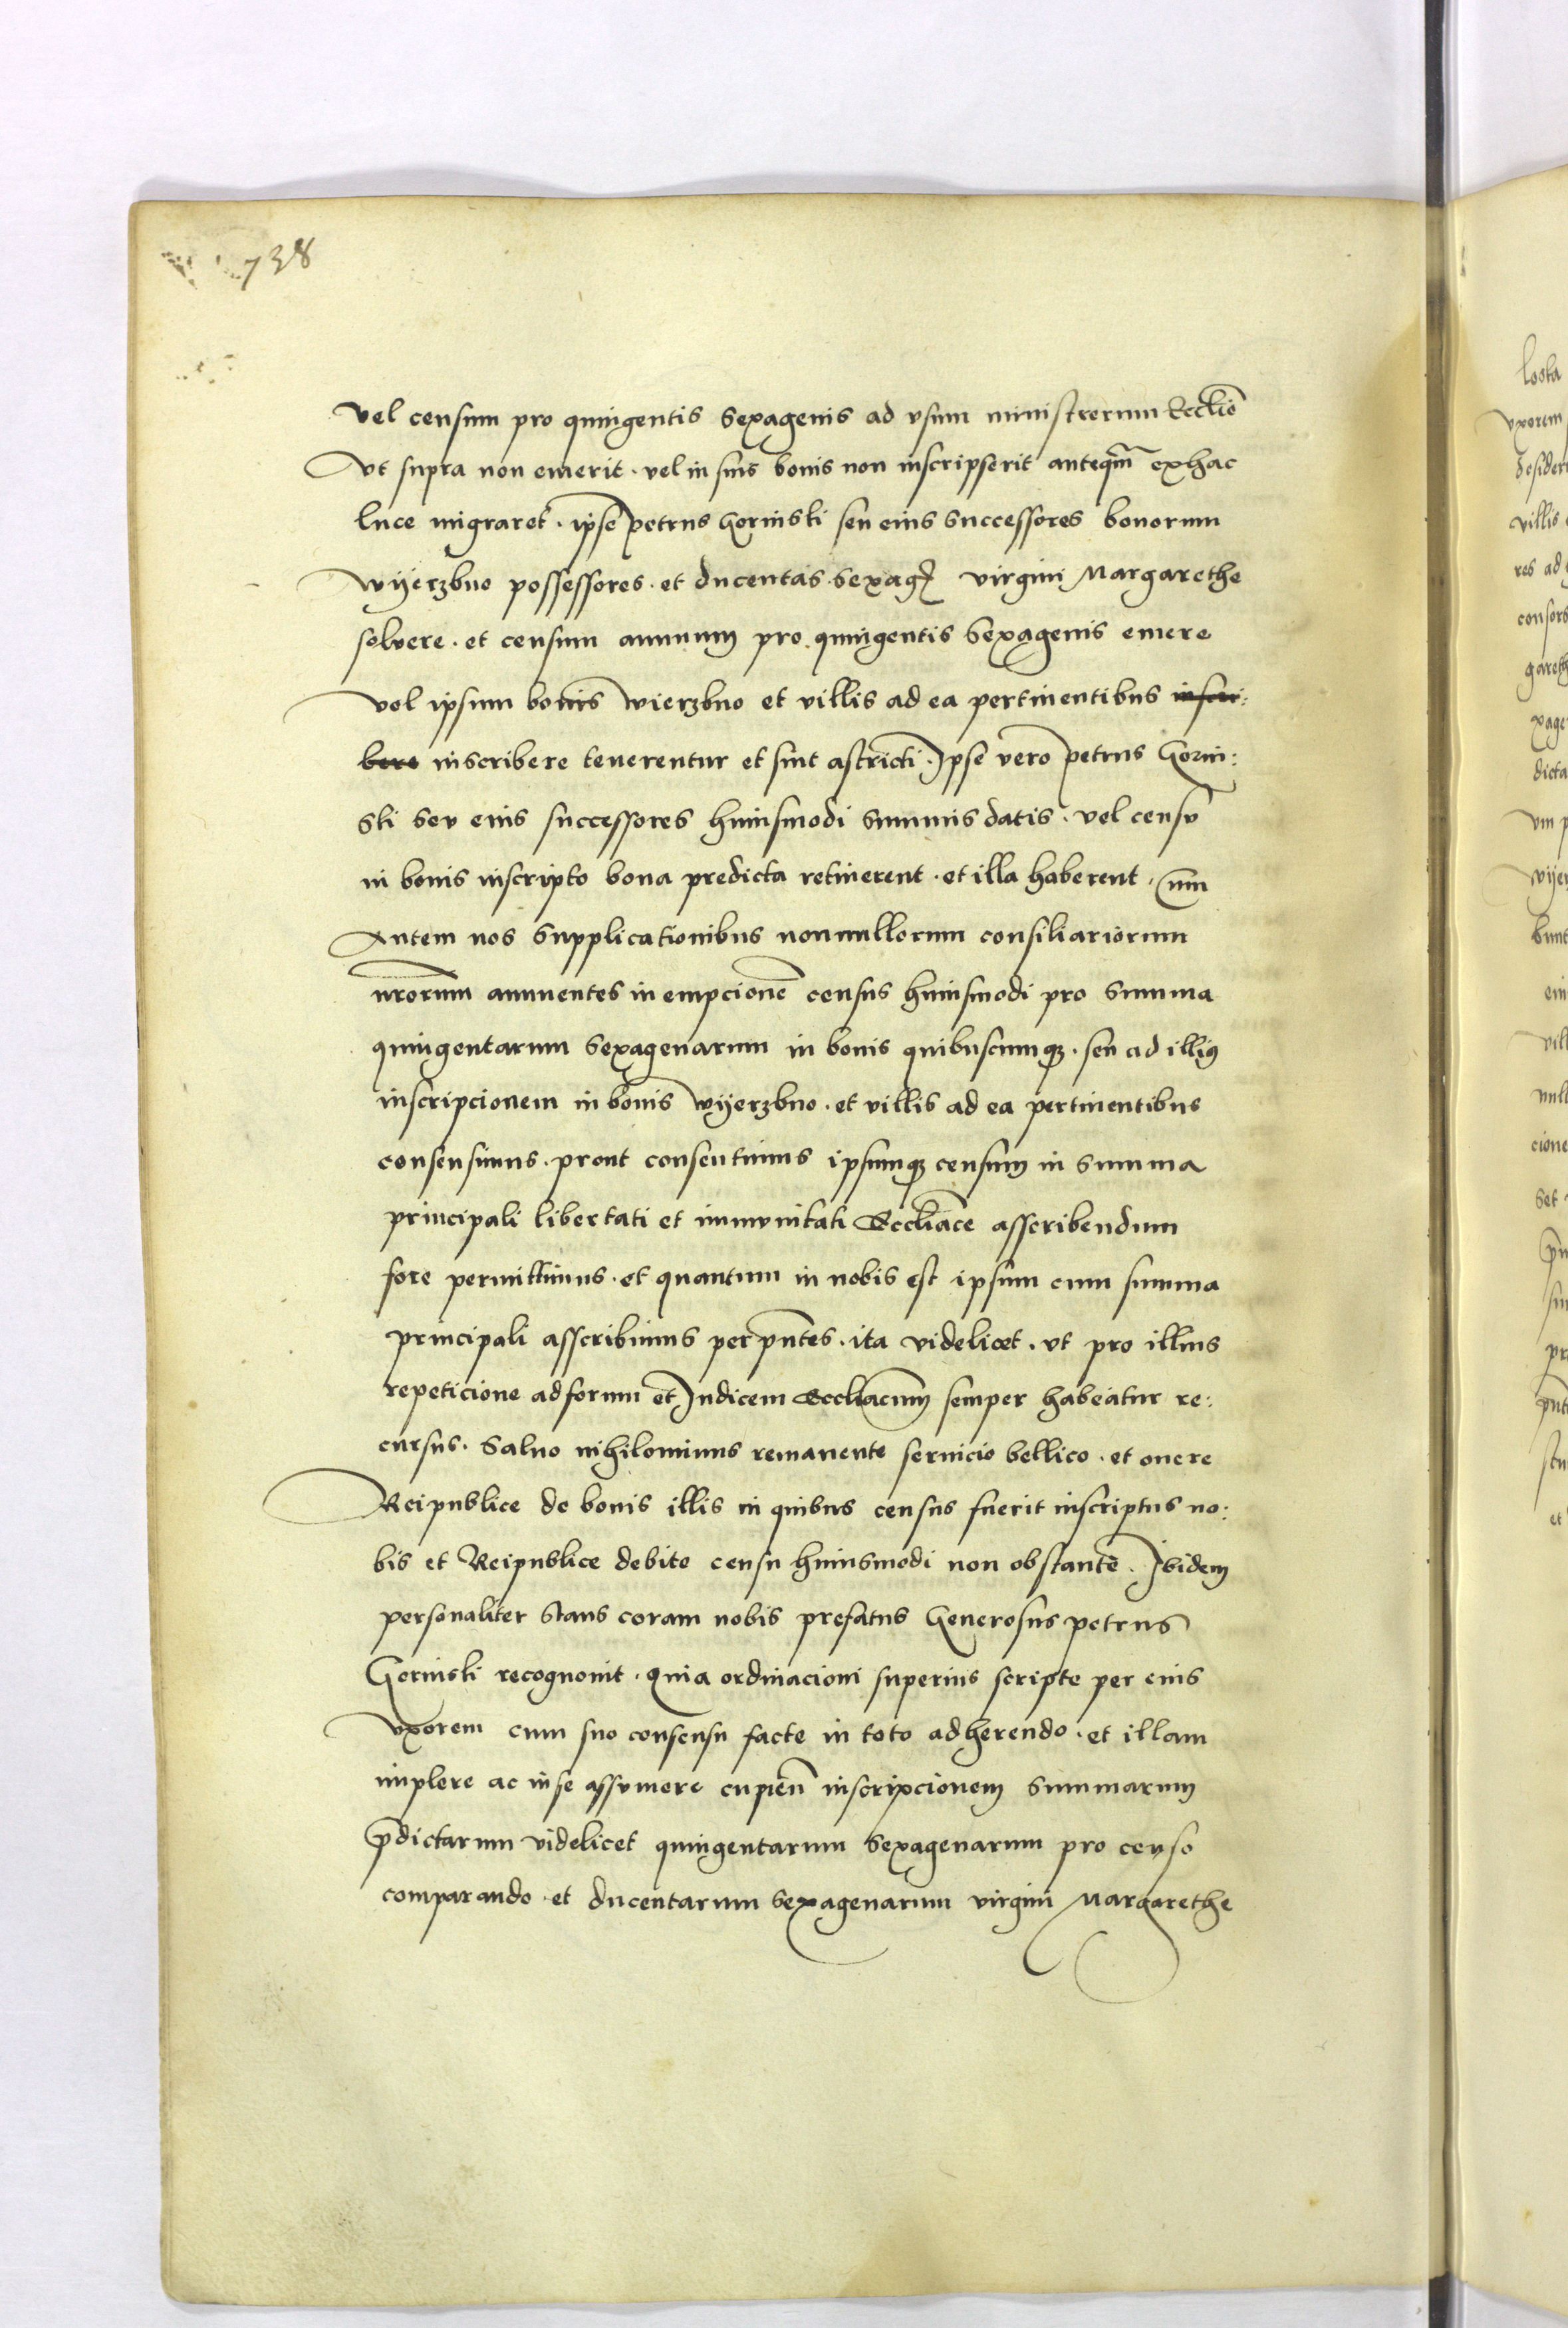 738
vel censum pro quingentis sexagenis ad vsum ministrorum Ecclie
Vt supra non emerit . vel in suis bonis non inscripserit anteqm̃ ex hac
luce migraret . ipse petrus Gorinski seu eius successores bonorum
Wyerzbno possessores . et ducentas sexag virgini Margarethe
solvere . et censum annuum pro quingentis sexagenis emere
vel ipsum bonis Wierzbno et villis ad ea pertinentibus inscri:
bere inscribere tenerentur et sint astricti . Ipse vero petrus Gorin:
ski sev eius successores huiusmodi summis datis . vel censv
in bonis inscripto bona predicta retinerent . et illa haberent . Cum
Autem nos supplicationibus nonnullorum consiliariorum
nrõrum annuentes in empcionẽ census huiusmodi pro summa
quingentarum sexagenarum in bonis quibuscumqz . seu ad illius
inscripcionem in bonis Wyerzbno . et villis ad ea pertinentibus
consensimus . prout consentimus ipsumqz censum in summa
principali libertati et immvnitati Eccliãce asscribendum
fore permittimus . et quantum in nobis est ipsum cum summa
principali asscribimus per pñtes . ita videlicet . vt pro illius
repeticione ad forum et Iudicem Eccliãcum semper habeatur re:
cursus . Saluo nihilominus remanente seruicio bellico . et onere
Reipublice de bonis illis in quibus census fuerit inscriptus no:
bis et Reipublice debito censu huiusmodi non obstante . Ibidem
personaliter stans coram nobis prefatus Generosus petrus
Gorinski recognouit . quia ordinacioni superius scripte per eius
vxorem cum suo consensu facte in toto adherendo . et illam
implere ac in se assvmere cupieñ inscripcionem summarum
p̃dictarum videlicet quingentarum sexagenarum pro censo
comparando . et ducentarum sexagenarum virgini Margarethe